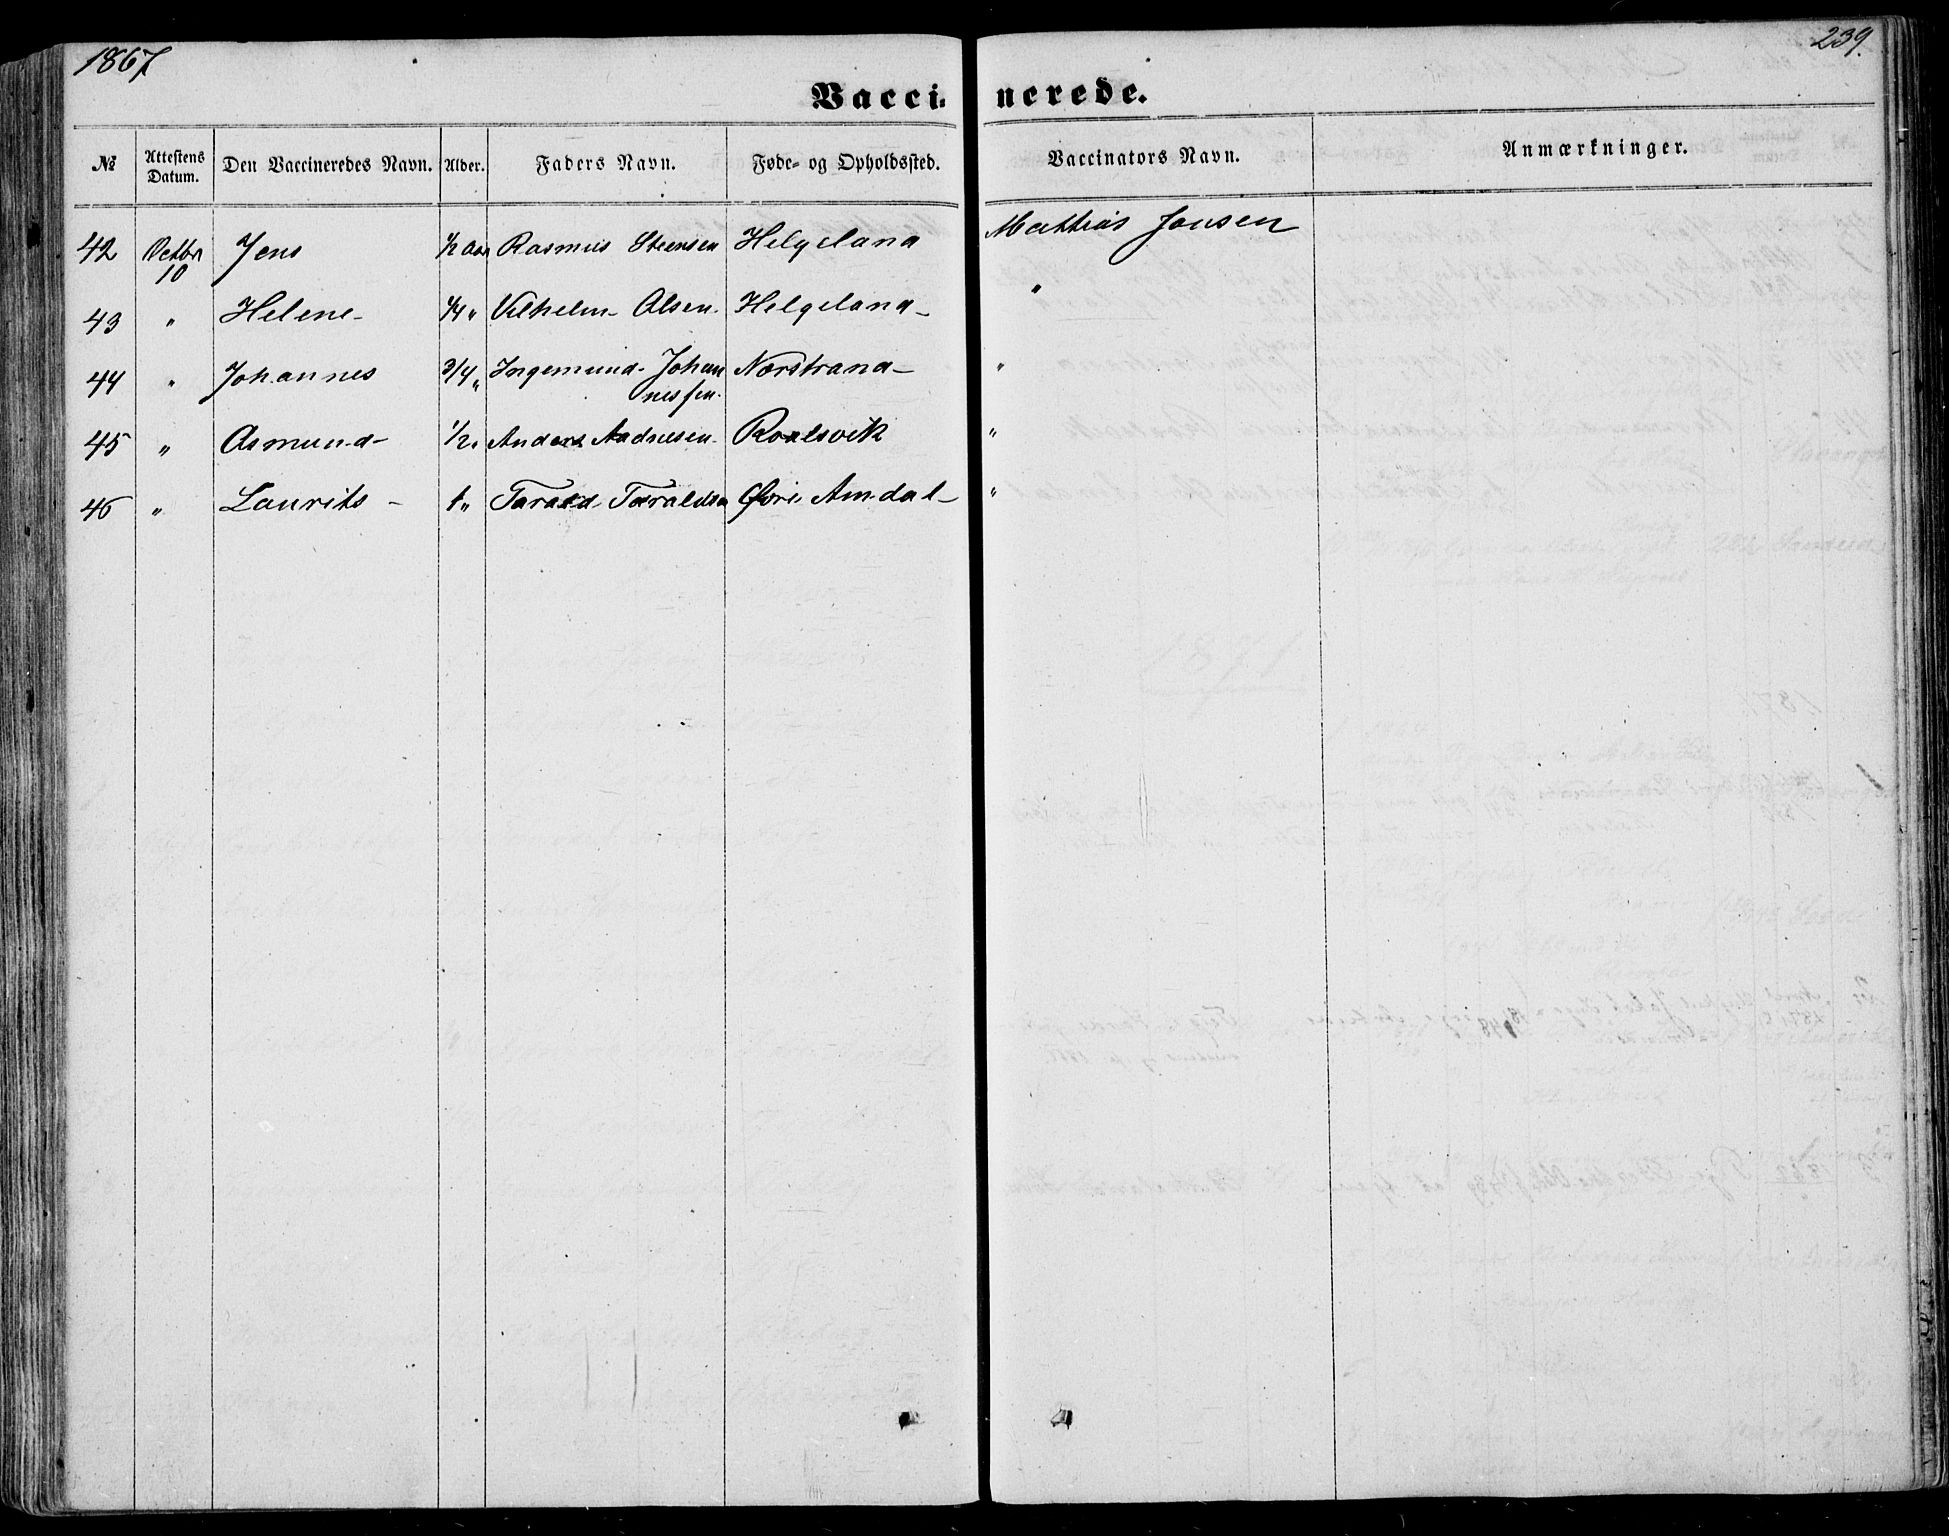 1867
239.
Vaccinerede.
№ | Attestens Datum. | Den Vaccineredes Navn. | Alder. | Faders Navn. | Føde- og Opholdssted. | Vaccinators Navn. | Anmærkninger.
42 | Octbr 10 | Jens | 1/2 Aar | Rasmus Steensen | Helgeland | Mathias Jonsen
43 | " | Helene | 1/4 " | Vilhelm Olsen | Helgeland | "
44 | " | Johannes | 3/4 " | Ingemund Johannessen | Nærstrand | "
45 | " | Asmund | 1/2 " | Anders Andriesen | Roalsvik | "
46 | " | Laurits | 1 " | Tarald Taraldsen | Øvre Amdal | "